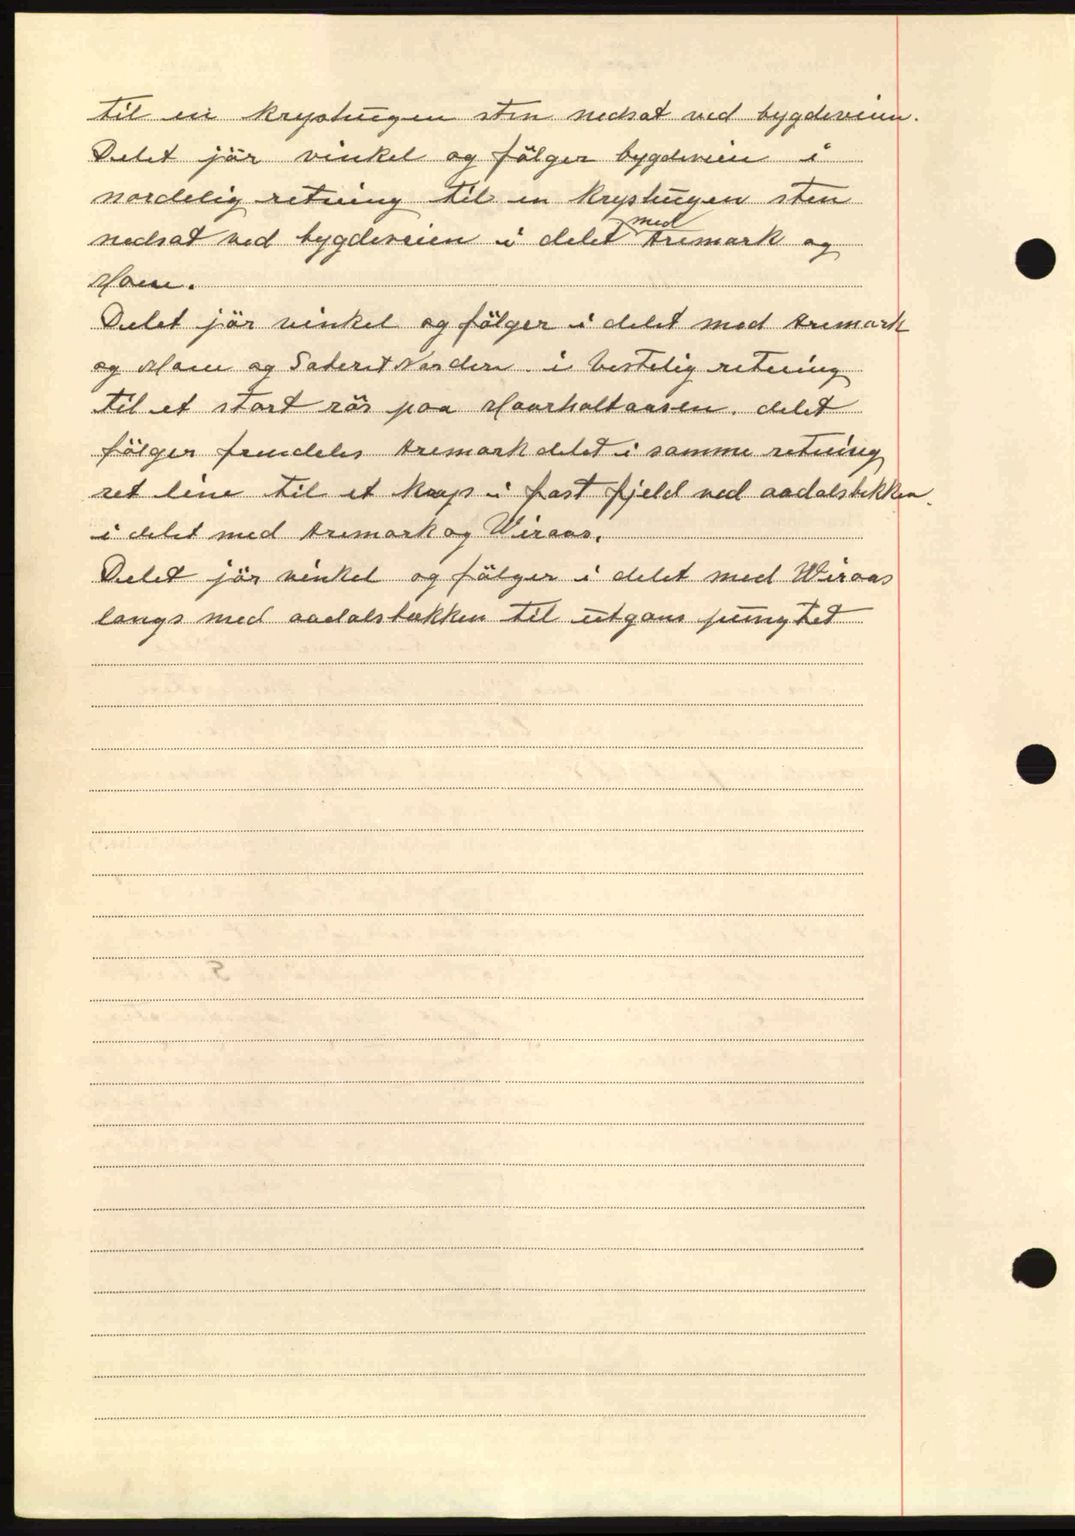 til en kryshugen sten nedsat ved bygdeveien.
Delet jör vinkel og fölger bygdeveien i
nordelig retning til en kryshugen sten
nedsat ved bygdeveien i delet med Aremark og
Ham.
Delet jör vinkel og fölger i delet med Aremark
og Ham og Nordre i Vestelig retning
til et stort rös paa delet
fölger fremdeles Aremark delet i samme retning
ret line til et kryp i fast fjeld ved aadalsbekken.
i delet med Aremark og Wiraas.
Delet jör vinkel og fölger i delet med Wiraas
langs med aadalsbekken til utgans pungtet